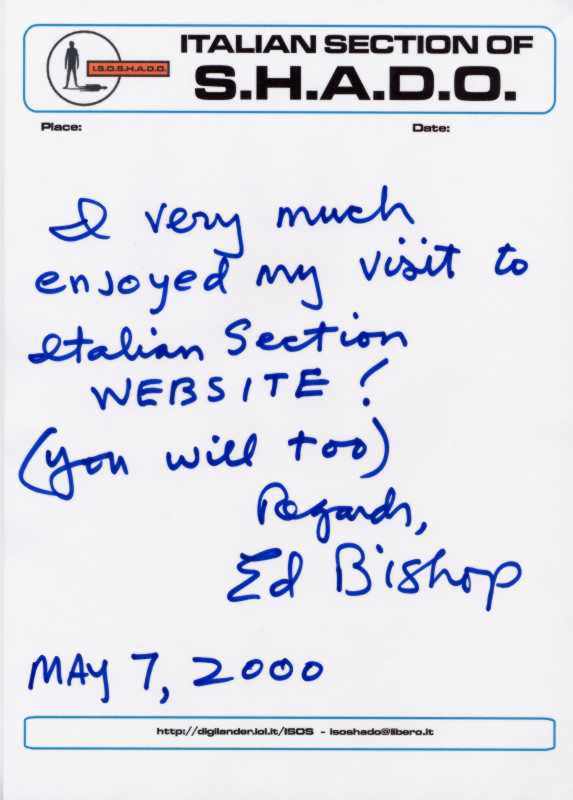 I.S.O.S.H.A.D.O.
ITALIAN SECTION OF
S.H.A.D.O.
Place: Date:
I very much
enjoyed my visit to
Italian Section
WEBSITE!
(you will too)
Regards,
Ed Bishop
MAY 7, 2000
http://digilander.iol.it/ISOS - isoshado@libero.it